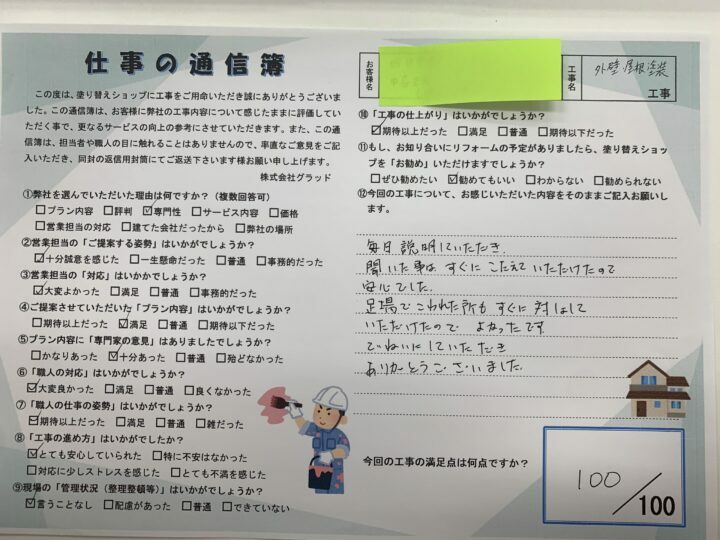 仕事の通信簿
この度は、塗り替えショップに工事をご用命いただき誠にありがとうございま
した。この通信簿は、お客様に弊社の工事内容について感じたままに評価してい
ただく事で、更なるサービスの向上の参考にさせていただきます。また、この通
信簿は、担当者や職人の目に触れることはありませんので、率直なご意見をご記
入いただき、同封の返信用封筒にてご返送下さいます様お願い申し上げます。
株式会社グラッド
①弊社を選んでいただいた理由は何ですか?(複数回答可)
□プラン内容 □評判 ☑専門性 □サービス内容 □価格
□営業担当の対応 □建てた会社だったから □弊社の場所
②営業担当の「ご提案する姿勢」はいかがでしょうか?
☑十分誠意を感じた □一生懸命だった □普通 □事務的だった
③営業担当の「対応」はいかかでしょうか?
☑大変よかった □満足 □普通 □事務的だった
④ご提案させていただいた「プラン内容」はいかがでしょうか?
□期待以上だった ☑満足 □普通 □期待以下だった
⑤プラン内容に「専門家の意見」はありましたでしょうか?
□かなりあった ☑十分あった □普通 □殆どなかった
⑥「職人の対応」はいかがでしょうか?
☑大変良かった □満足 □普通 □良くなかった
⑦「職人の仕事の姿勢」はいかがでしょうか?
☑期待以上だった □満足 □普通 □雑だった
⑧「工事の進め方」はいかがでしたか?
☑とても安心していられた □特に不安はなかった
□対応に少しストレスを感じた □とても不満を感じた
⑨現場の「管理状況(整理整頓等)」はいかがでしょうか?
☑言うことなし □配慮があった □普通 □できていない
お客様名
工事名
外壁屋根塗装
工事
⑩「工事の仕上がり」はいかがでしょうか?
☑期待以上だった □満足 □普通 □期待以下だった
⑪もし、お知り合いにリフォームの予定がありましたら、塗り替えショッ
プを「お勧め」いただけますでしょうか?
□ぜひ勧めたい ☑勧めてもいい □わからない □勧められない
⑫今回の工事について、お感じいただいた内容をそのままご記入お願いし
ます。
毎日説明していただき、
聞いた事はすぐにこたえていただけたので
安心でした。
足場でこわれた所もすぐに対応して
いただけたので よかったです。
ていねいにしていただき
ありがとうございました。
今回の工事の満足点は何点ですか?
100/100